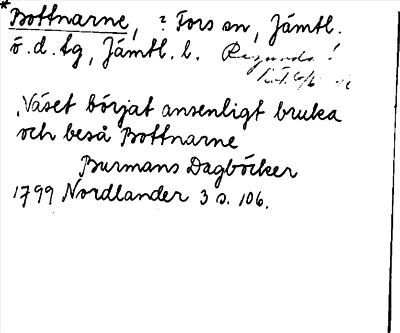 *Bottnarne, ? Fors sn, Jämtl.
ö. d. tg, Jämtl. l. Ragunda!
"Väset börjat ansenligt bruka
och beså Bottnarne
Burmans Dagböcker
1799 Nordlander 3 s. 106.